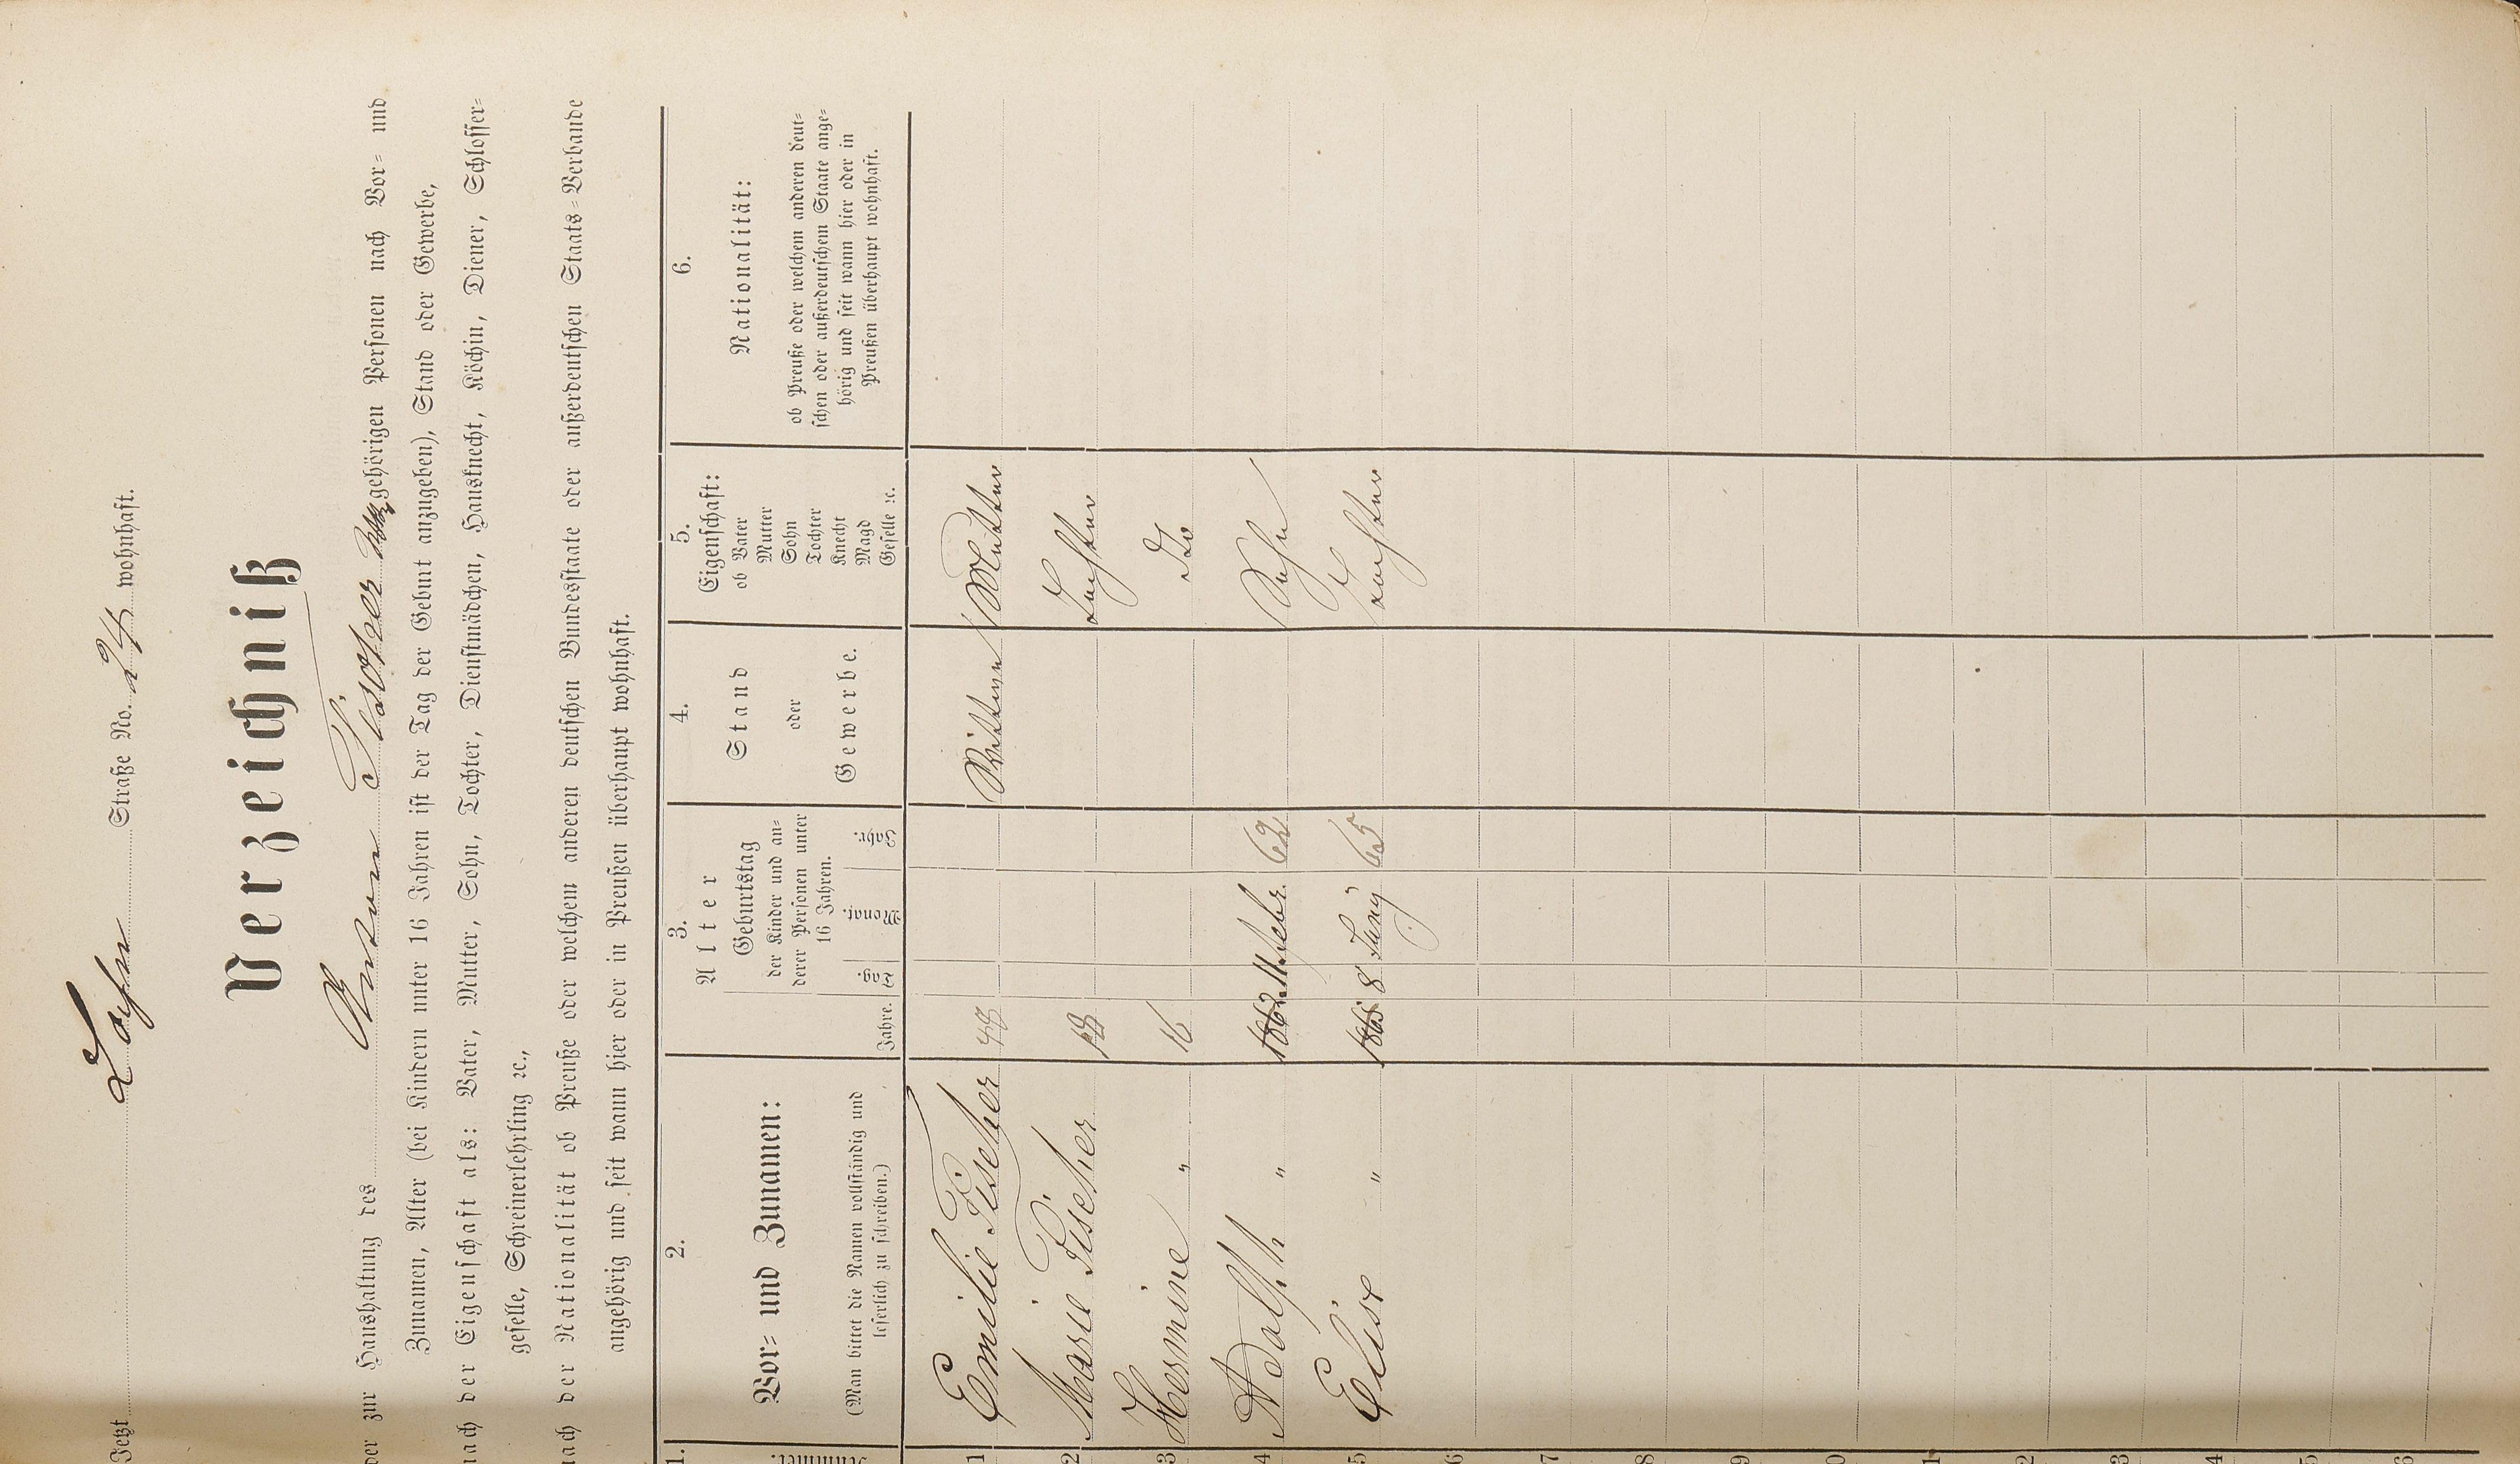 Jetzt Lahn Straße No. 24 wohnhaft.
Verzeichniß
der zur Haushaltung des Anton Fischer Wwe gehörigen Personen nach Vor= und
Zunamen, Alter (bei Kindern unter 16 Jahren ist der Tag der Geburt anzugeben), Stand oder Gewerbe,
nach der Eigenschaft als: Vater, Mutter, Sohn, Tochter, Dienstmädchen, Hausknecht, Köchin, Diener, Schlosser=
geselle, Schreinerlehrling ꝛc.,
nach der Nationalität ob Preuße oder welchem anderen deutschen Bundesstaate oder außerdeutschen Staats=Verbande
angehörig und seit wann hier oder in Preußen überhaupt wohnhaft.
1.
Nummer.
2.
Vor= und Zunamen:
(Man bittet die Namen vollständig und
leserlich zu schreiben.)
3.
Alter
Jahre.
Geburtstag
der Kinder und an=
derer Personen unter
16 Jahren.
Tag.
Monat.
Jahr.
4.
Stand
oder
Gewerbe.
5.
Eigenschaft:
ob Vater
Mutter
Sohn
Tochter
Knecht
Magd
Geselle ꝛc.
6.
Nationalität:
ob Preuße oder welchem anderen deut=
schen oder außerdeutschem Staate ange=
hörig und seit wann hier oder in
Preußen überhaupt wohnhaft.
1 Emilie Fischer 48 Wittwe Mutter
2 Marie Fischer 18 Tochter
3 Hermine " 16 Dto
4 Adolph " 1862 11 Febr. 62 Sohn
5 Elise " 1865 8 Juny 65 Tochter
6
7
8
9
0
1
2
3
4
5
6